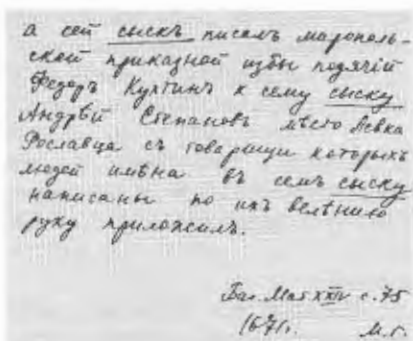 а сей сыскъ писалъ марополь-
ской приказной избы подячій
Ѳедоръ Култинъ к сему сыску
Андрѣй Степановъ мѣсто Левка
Рославца съ товарищи которыхъ
людей имѣна въ семъ сыску
написаны по ихъ велѣнию
руку приложилъ.
Баг. Мат XXIV с. 75
1671. М.г.